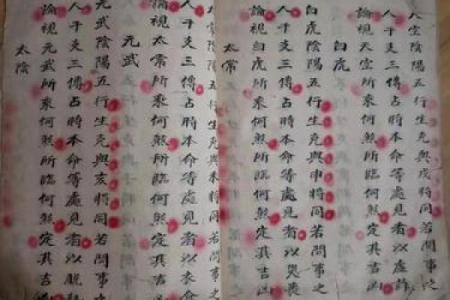 天空陰陽五行生克與戌將同若問事之
人干支三傳占時本命等處見者以虛詐
論視天空所乘何煞所臨何煞定其吉凶
白虎
白虎陰陽五行生克與申將同若問事之
人干支三傳占時本命等處見者以喪
論視白虎所乘何煞所臨何煞定其吉凶
太常
常陰陽五行生克與未將同若問事之
人干支三傳占時本命等處見者以衣食
論視太常所乘何煞所臨何煞定其吉凶
元武
元武陰陽五行生克與亥將同若問事之
人干支三傳占時本命等處見者以脫
論視元武所乘何煞所臨何煞定其吉凶
太陰